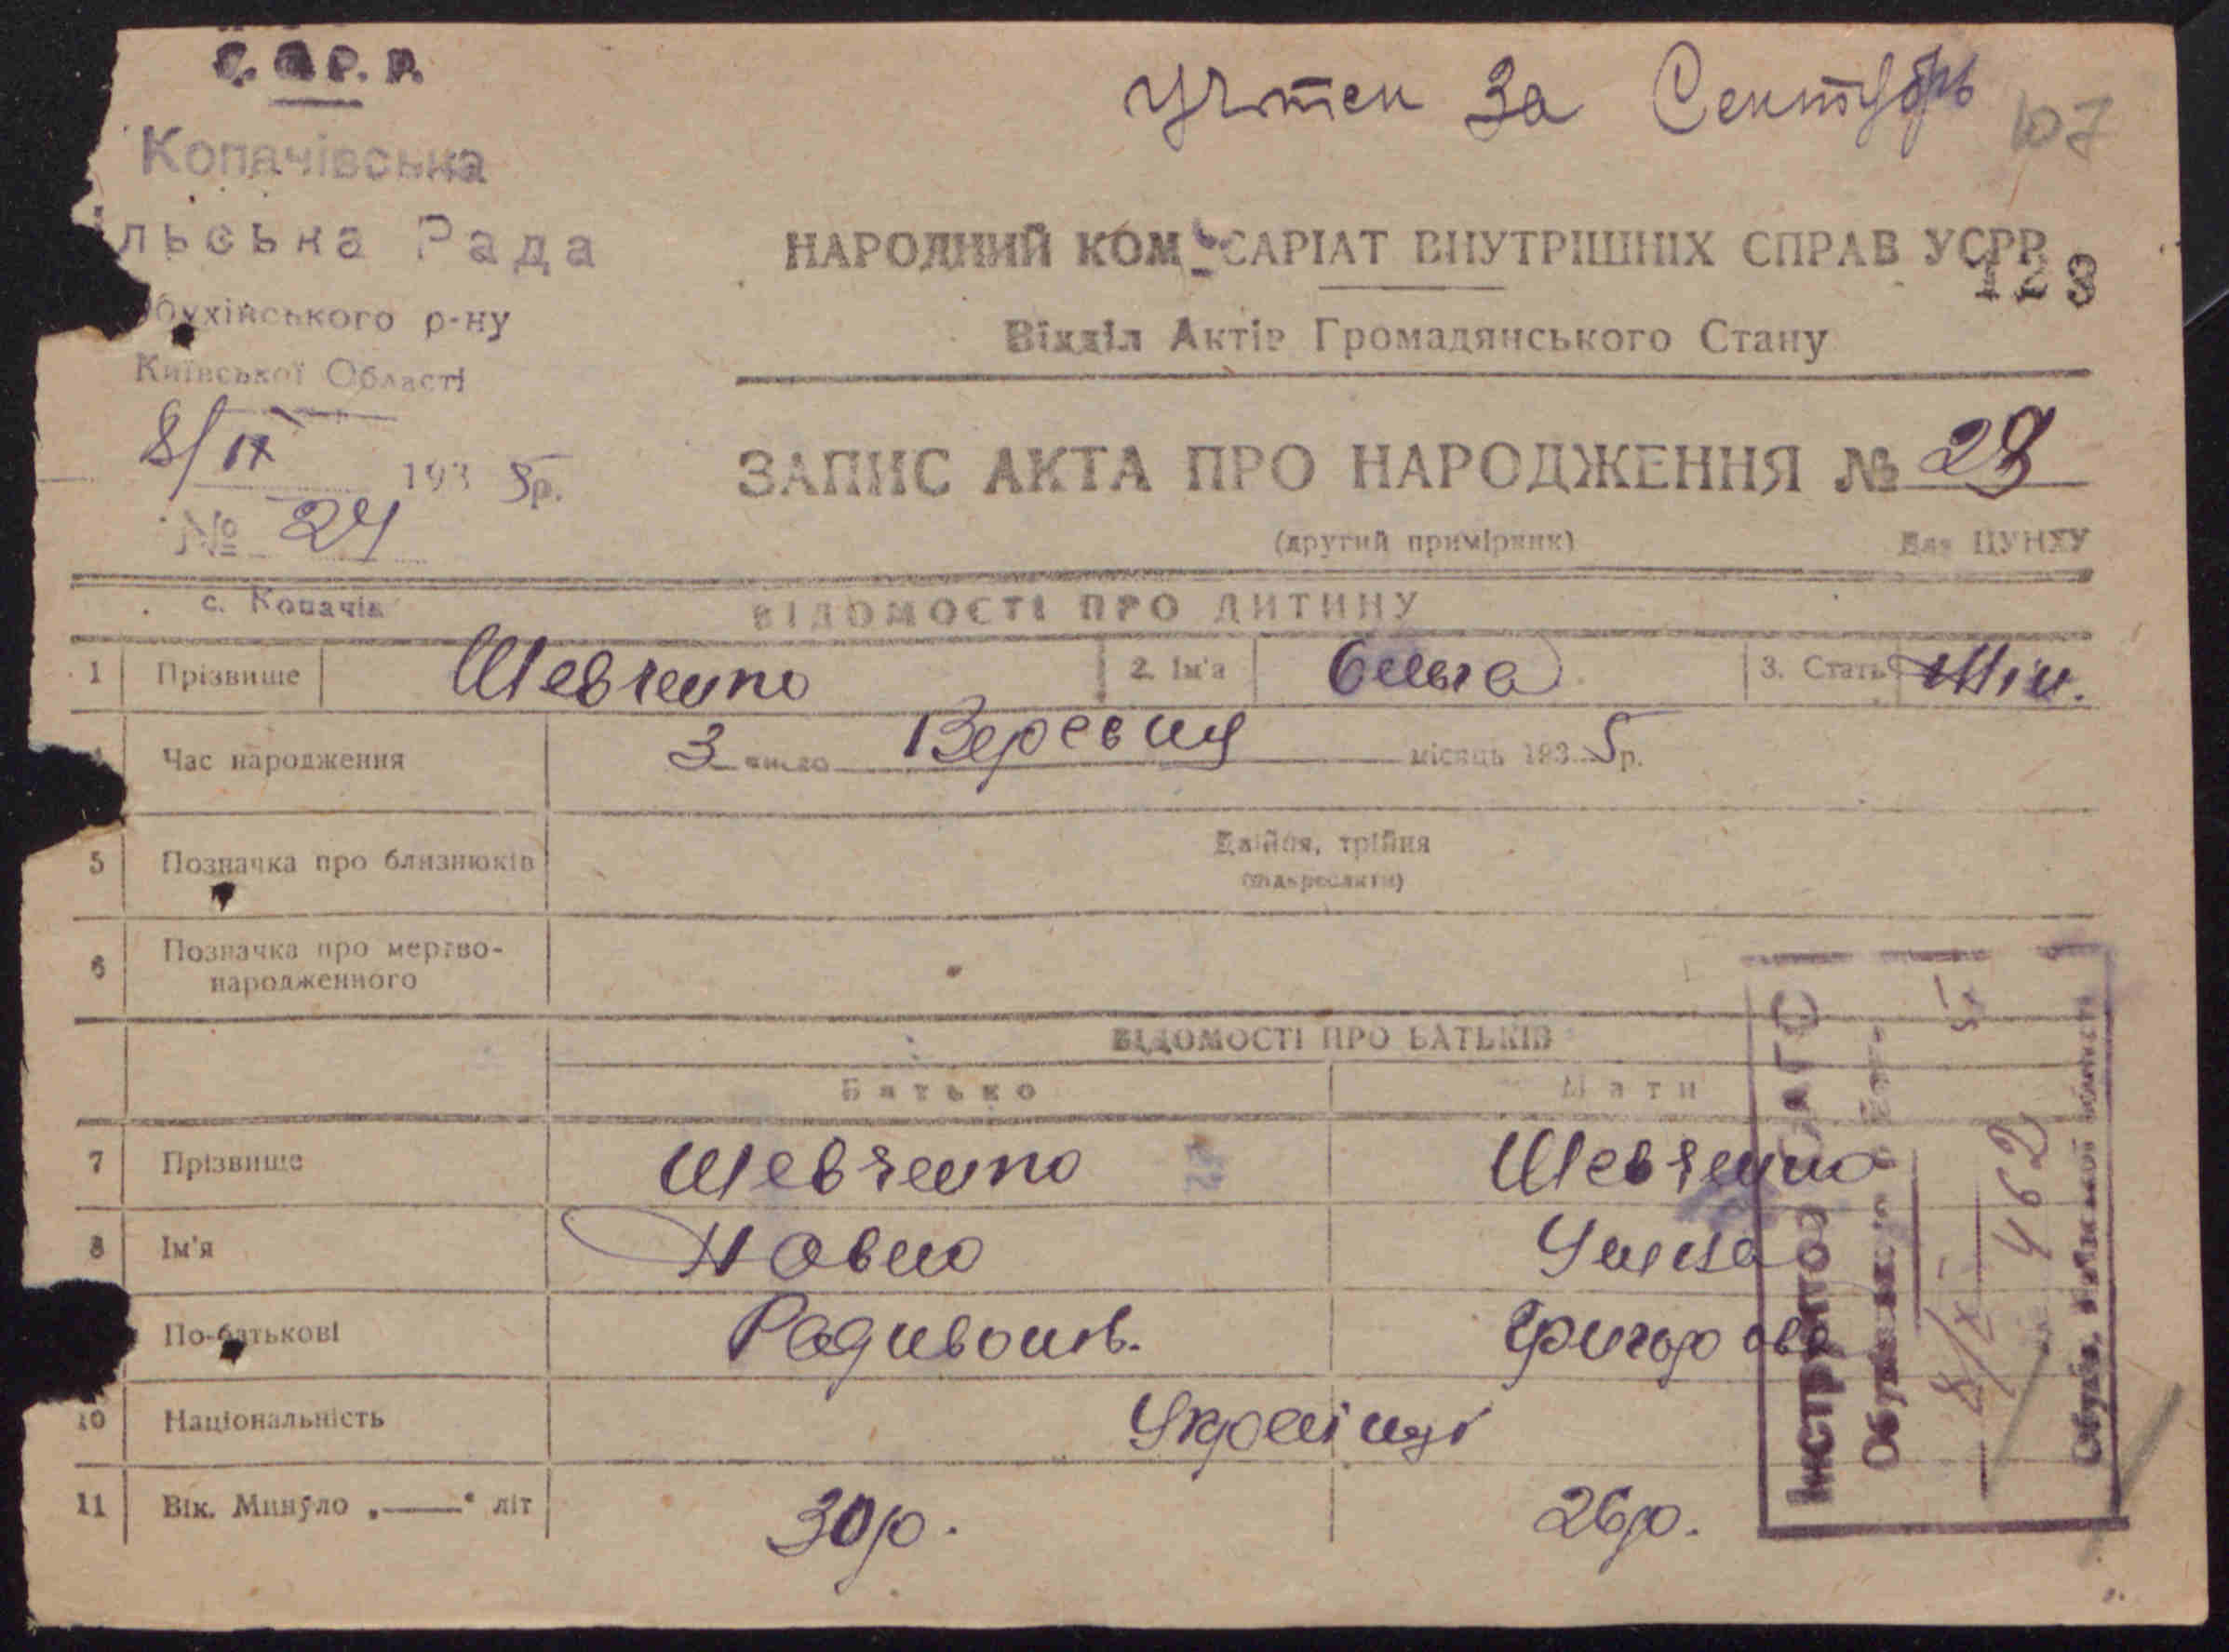 У.С.Р.Р.
Учтен за Сентябрь
107
Копачівська
ільська Рада
Обухівського р-ну
Київської Області
8/IX 1935р.
№ 24
НАРОДНИЙ КОМІСАРІАТ ВНУТРІШНІХ СПРАВ УСРР
129
Відділ Актів Громадянського Стану
ЗАПИС АКТА ПРО НАРОДЖЕННЯ № 28
(другий примірник) Для ЦУНХУ
с. Копачів
ВІДОМОСТІ ПРО ДИТИНУ
1 Прізвище Шевченко 2. Ім'я Ольга 3. Стать Жін.
Час народження 3 число Вересня місяць 1935р.
5 Позначка про близнюків Двійня, трійня
(підкреслити)
6 Позначка про мертво-
народженного
ВІДОМОСТІ ПРО БАТЬКІВ
Батько Мати
7 Прізвище Шевченко Шевченко
8 Ім'я Павло
По-батькові Радивонів. Григорова
10 Національність Українці
11 Вік. Минуло „——“ літ 30р. 26р.
8/X
5
462